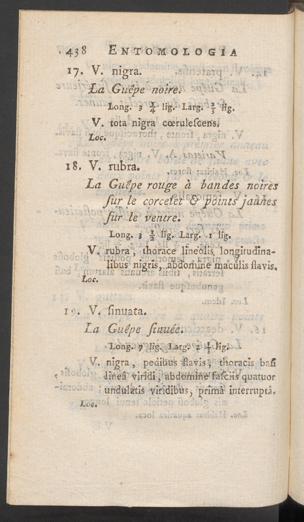 438 ENTOMOLOGIA
17. V. nigra.
La Guêpe noire.
Long. 3 lig. Larg. lig.
V. tota nigra cœruleſcens.
Loc.
18. V. rubra.
La Guêpe rouge à bandes noires
ſur le corcelet & points jaunes
ſur le ventre.
Long. 3 lig. Larg. 1 lig.
V. rubra, thorace lineolis longitudina-
libus nigris, abdomine maculis flavis.
Loc.
19. V. ſinuata.
La Guêpe ſinuée.
Long. 7 lig. Larg. lig.
V. nigra, pedibus flavis, thoracis baſi
lineâ viridi, abdomine faſciis quatuor
undulatis viridibus, primâ interruptâ.
Loc.